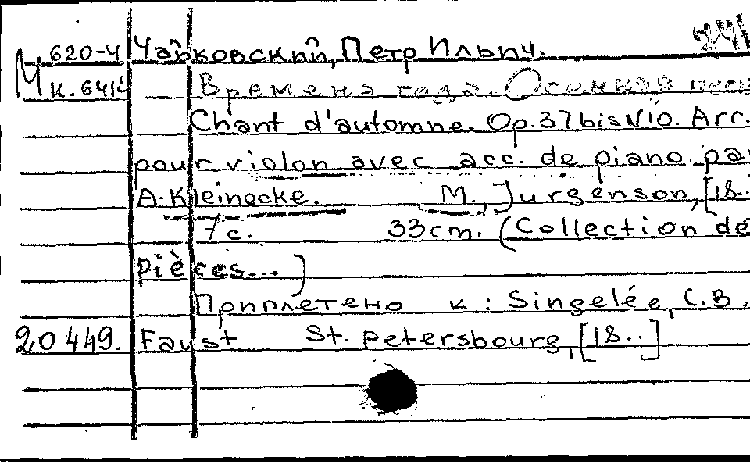 М 620-4 Чайковский, Петр Ильич.
к.641/2 Времена года. Осенняя песн
Chant d'automne. Op.37bis№10. Arr.
pour violon avec acc. de piano pa
A. Kleinecke. М., Jurgenson, [18..
7с. 33cm. (Collection de
pièces...)
Приплетено к: Singelée, C.B.
20449. Faust St. Petersbourg, [18..]